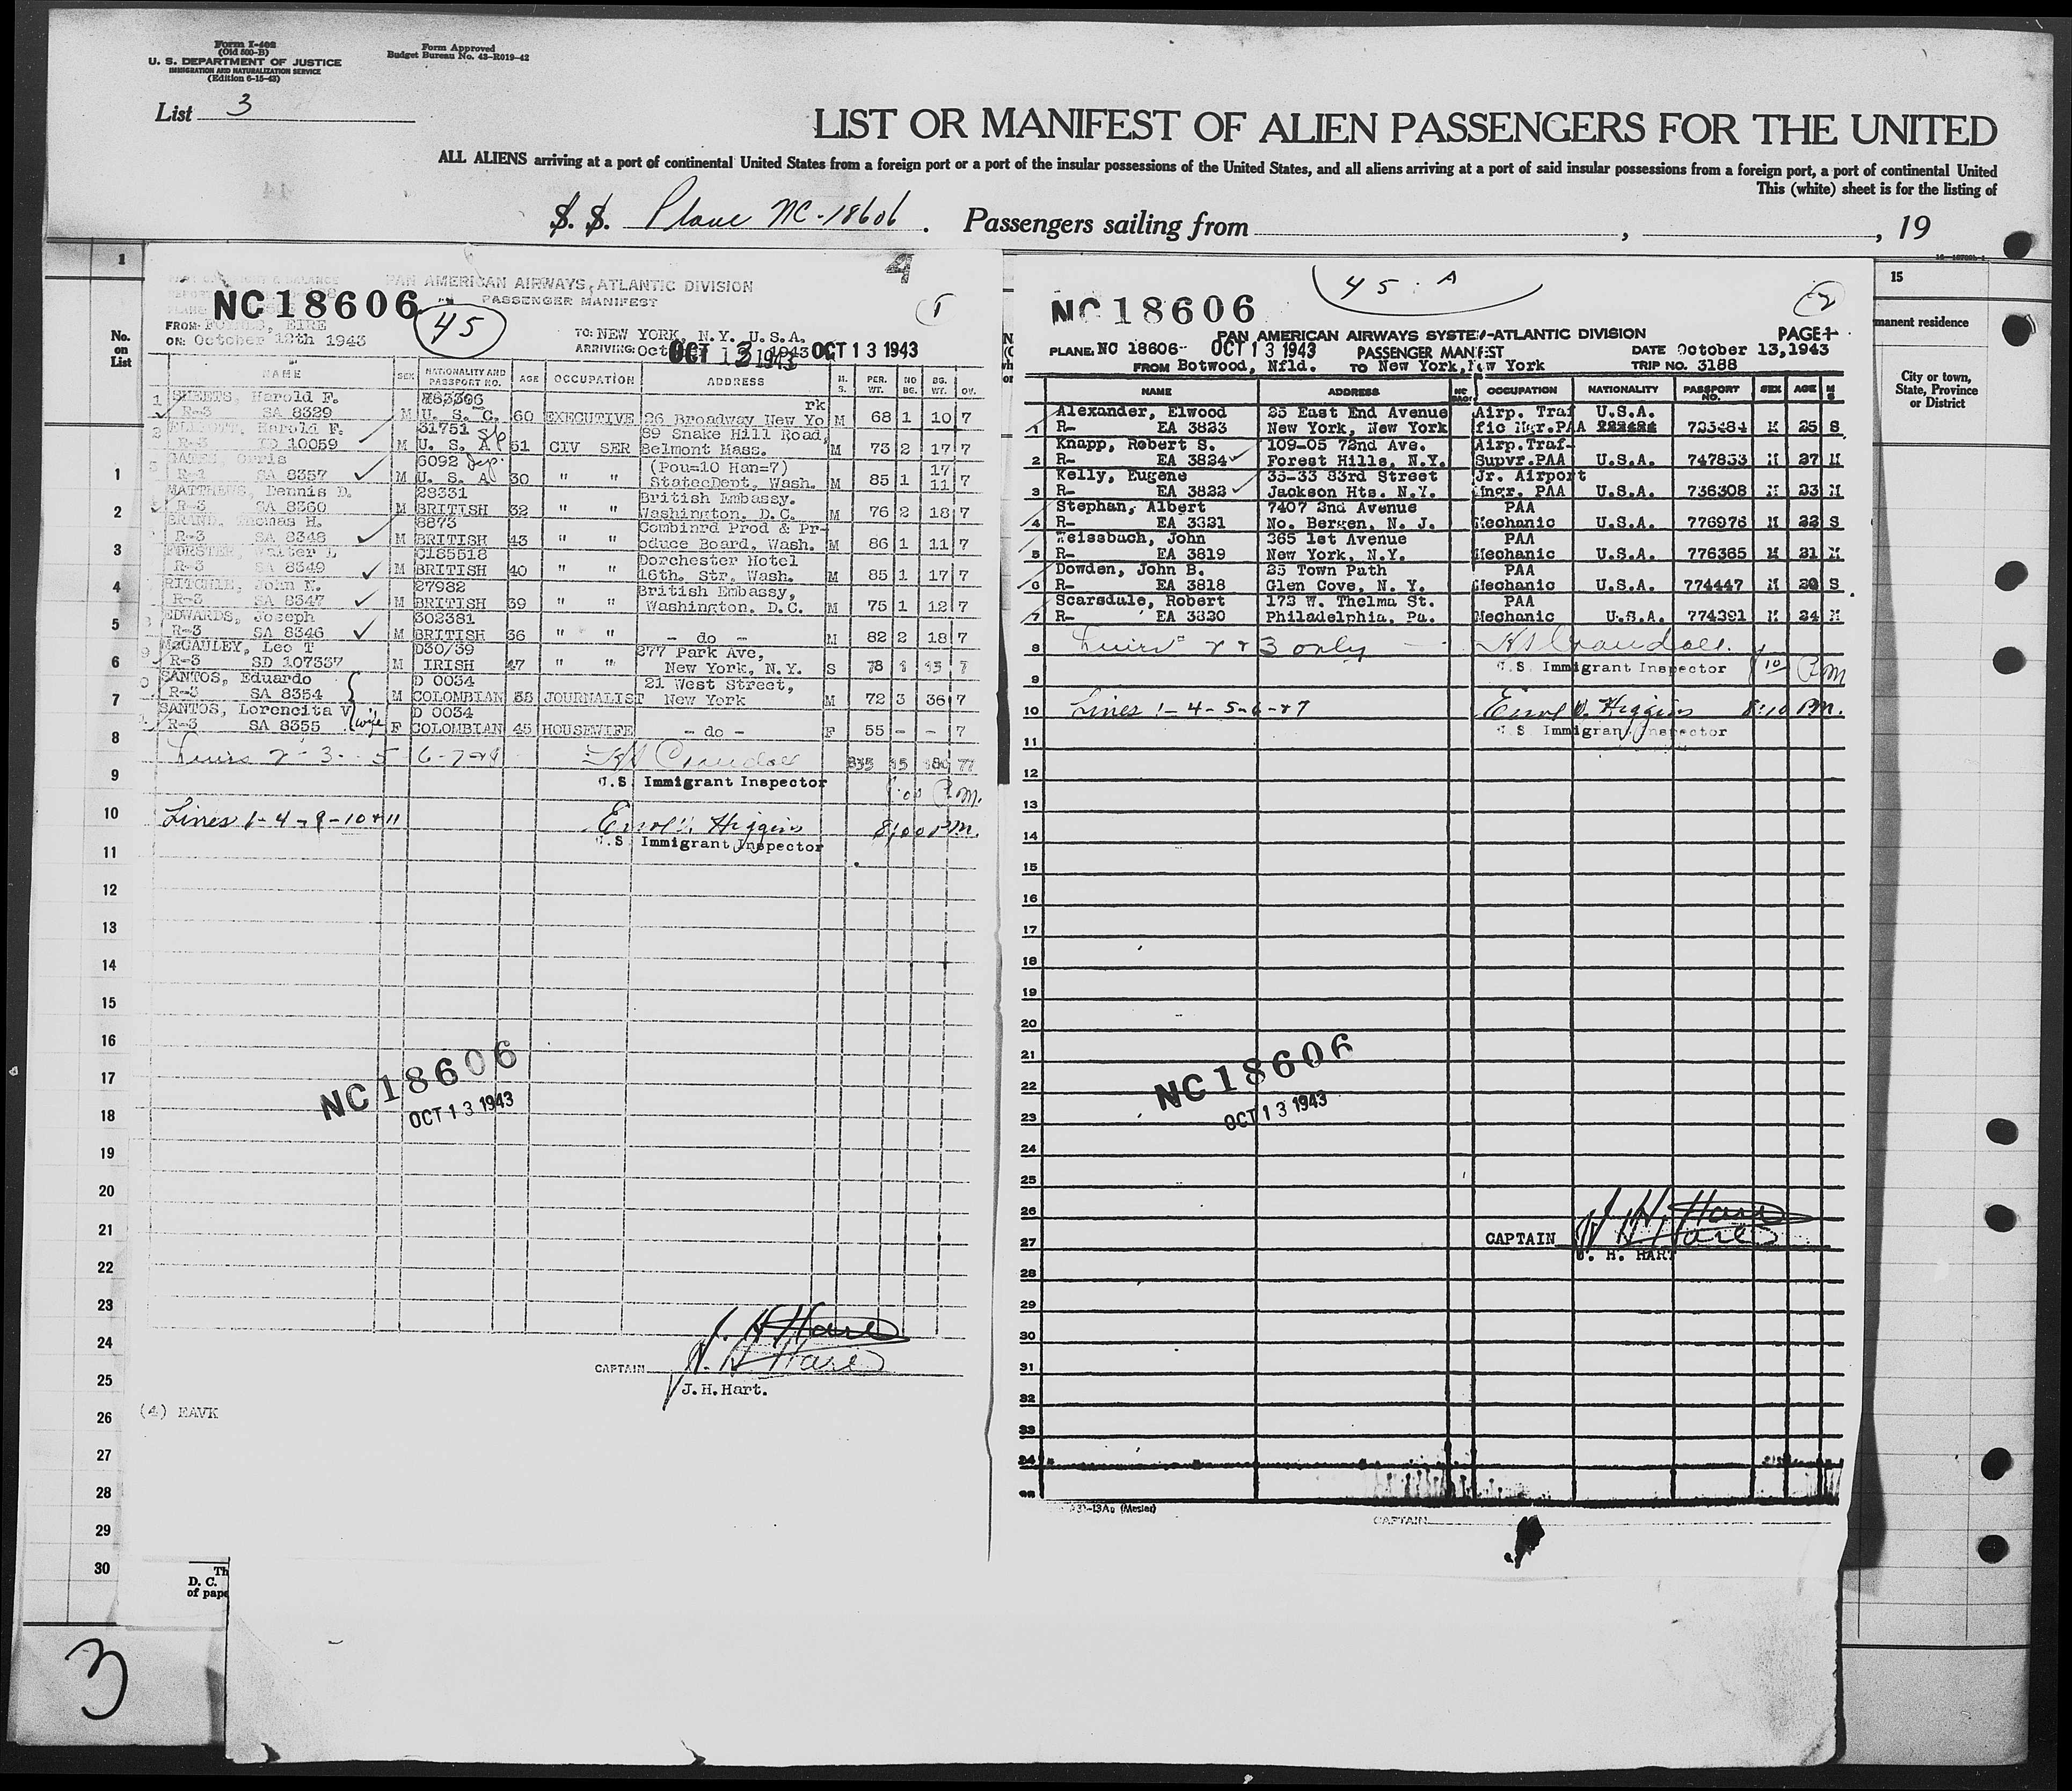 Form I-402
(Old 500-B)
U. S. DEPARTMENT OF JUSTICE
IMMIGRATION AND NATURALIZATION SERVICE
(Edition 6-15-43)
Form Approved
Budget Bureau No. 43-R019-42
List 3
LIST OR MANIFEST OF ALIEN PASSENGERS FOR THE UNITED
ALL ALIENS arriving at a port of continental United States from a foreign port or a port of the insular possessions of the United States, and all aliens arriving at a port of said insular possessions from a foreign port, a port of continental United
This (white) sheet is for the listing of
S. S. Plane NC-18606. Passengers sailing from , , 19
No. on List
4
PAN AMERICAN AIRWAYS, ATLANTIC DIVISION
PASSENGER MANIFEST
NC18606
45
1
FROM: FOYNES, EIRE
TO: NEW YORK, N.Y. U.S.A.
ON: October 12th 1943
ARRIVING: OCT 13 1943 OCT 13 1943
NAME SEX NATIONALITY AND PASSPORT NO. AGE OCCUPATION ADDRESS M. S. PER. WT. NO BG. BG. WT. OV.
1 SHEETS, Harold F. rk
R-3 SA 8329 M U. S. C. 60 EXECUTIVE 26 Broadway New Yo M 68 1 10 7
2 ELLIOTT, Harold F. 31751 89 Snake Hill Road,
R-3 ID 10059 M U. S. A 51 CIV SER Belmont Mass. M 73 2 17 7
6092 (Pou=10 Han=7) 17
SA 8357 M U. S. A 30 " " StatecDept, Wash. M 85 1 11 7
MATTHEWS, Dennis D. 28331 British Embassy.
R-3 SA 8360 M BRITISH 32 " " Washington. D. C. M 76 2 18 7
BRAND, Thomas H. 8873 Combinrd Prod & Pr-
R-3 SA 8348 M BRITISH 43 " " oduce Board, Wash. M 86 1 11 7
FORSTER, Walter L C185518 Dorchester Hotel
R-3 SA 8349 M BRITISH 40 " " 16th. Str, Wash. M 85 1 17 7
RITCHIE, John N. 27982 British Embassy,
R-3 SA 8347 M BRITISH 39 " " Washington. D.C. M 75 1 12 7
EDWARDS, Joseph 302381
R-3 SA 8346 M BRITISH 36 " " - do - M 82 2 18 7
McCAULEY, Leo T D30/39 277 Park Ave,
R-3 SD 107337 M IRISH 47 " " New York, N.Y. S 78 1 13 7
SANTOS, Eduardo D 0034 21 West Street,
R-3 SA 8354 M COLOMBIAN 55 JOURNALIST New York M 72 3 36 7
SANTOS, Lorencita V D 0034
R-3 SA 8355 wife F COLOMBIAN 45 HOUSEWIFE - do - F 55 - - 7
835 15 180 77
U.S. Immigrant Inspector
Lines 1-4-9-10+11 Errol D. Higgins 8:00 P.M.
U.S. Immigrant Inspector
NC18606
OCT 13 1943
J. H. Hart
CAPTAIN
J.H.Hart.
(4) EAVK
45 A
2
NC18606
PAN AMERICAN AIRWAYS SYSTEM-ATLANTIC DIVISION PAGE 1
PLANE, NC 18606 OCT 13 1943 PASSENGER MANIFEST DATE October 13,1943
FROM Botwood, Nfld. TO New York, New York TRIP NO. 3188
NAME ADDRESS OCCUPATION NATIONALITY PASSPORT NO. SEX AGE M S
Alexander, Elwood 25 East End Avenue Airp. Traf U.S.A.
1 R- EA 3823 New York, New York fic Mgr.PAA 723484 M 25 S
Knapp, Robert S. 109-05 72nd Ave. Airp.Traf-
2 R- EA 3824 Forest Hills, N.Y. Supvr.PAA U.S.A. 747853 M 27 M
Kelly, Eugene 33-33 83rd Street Jr. Airport
3 R- EA 3822 Jackson Hts. N.Y. Engr. PAA U.S.A. 736308 M 23 M
Stephan, Albert 7407 2nd Avenue PAA
4 R- EA 3821 No. Bergen, N. J. Mechanic U.S.A. 776976 M 22 S
Weissbach, John 365 1st Avenue PAA
5 R- EA 3819 New York, N.Y. Mechanic U.S.A. 776365 M 21 M
Dowden, John B. 25 Town Path PAA
6 R- EA 3818 Glen Cove, N. Y. Mechanic U.S.A. 774447 M 20 S
Scarsdale, Robert 173 W. Thelma St. PAA
7 R- EA 3820 Philadelphia, Pa. Mechanic U.S.A. 774391 M 24 M
8 Lines 2 + 3 only
U.S. Immigrant Inspector 8:10 P.M
9
10 Lines 1-4-5-6-+7 Errol D. Higgins 8:10 P.M.
U.S. Immigrant Inspector
11
12
13
14
15
16
17
18
19
20
21
22
23
24
25
26
27
28
29
30
31
32
33
34
NC18606
OCT 13 1943
J H Hart
CAPTAIN
J. H. HART
CAPTAIN
15
manent residence
City or town,
State, Province
or District
1
1
2
3
4
5
6
7
8
9
10
11
12
13
14
15
16
17
18
19
20
21
22
23
24
25
26
27
28
29
30
Th
D. C.
of pape
3